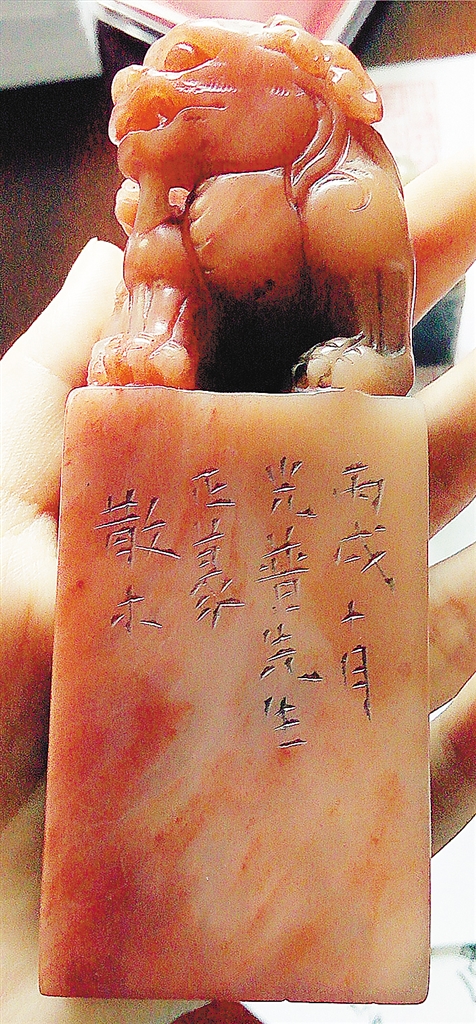 丙戌十月
光普先生
正篆
散木